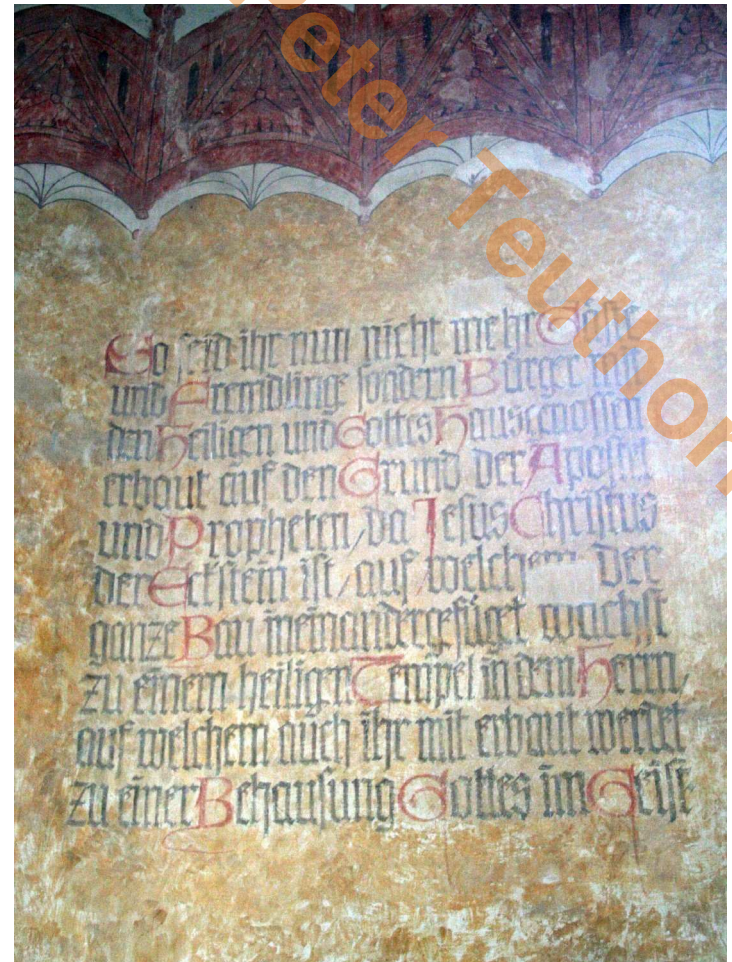 So seid ihr nun nicht mehr Gäste
und Fremdlinge sondern Bürger mit
den Heiligen und Gottes Hausgenossen
erbaut auf den Grund der Apostel
und Propheten, da Jesus Christus
der Eckstein ist, auf welchem der
ganze Bau ineinandergefüget wächst
zu einem heiligen Tempel in dem Herrn,
auf welchem auch ihr mit erbaut werdet
zu einer Behausung Gottes im Geist
eter Teuthor